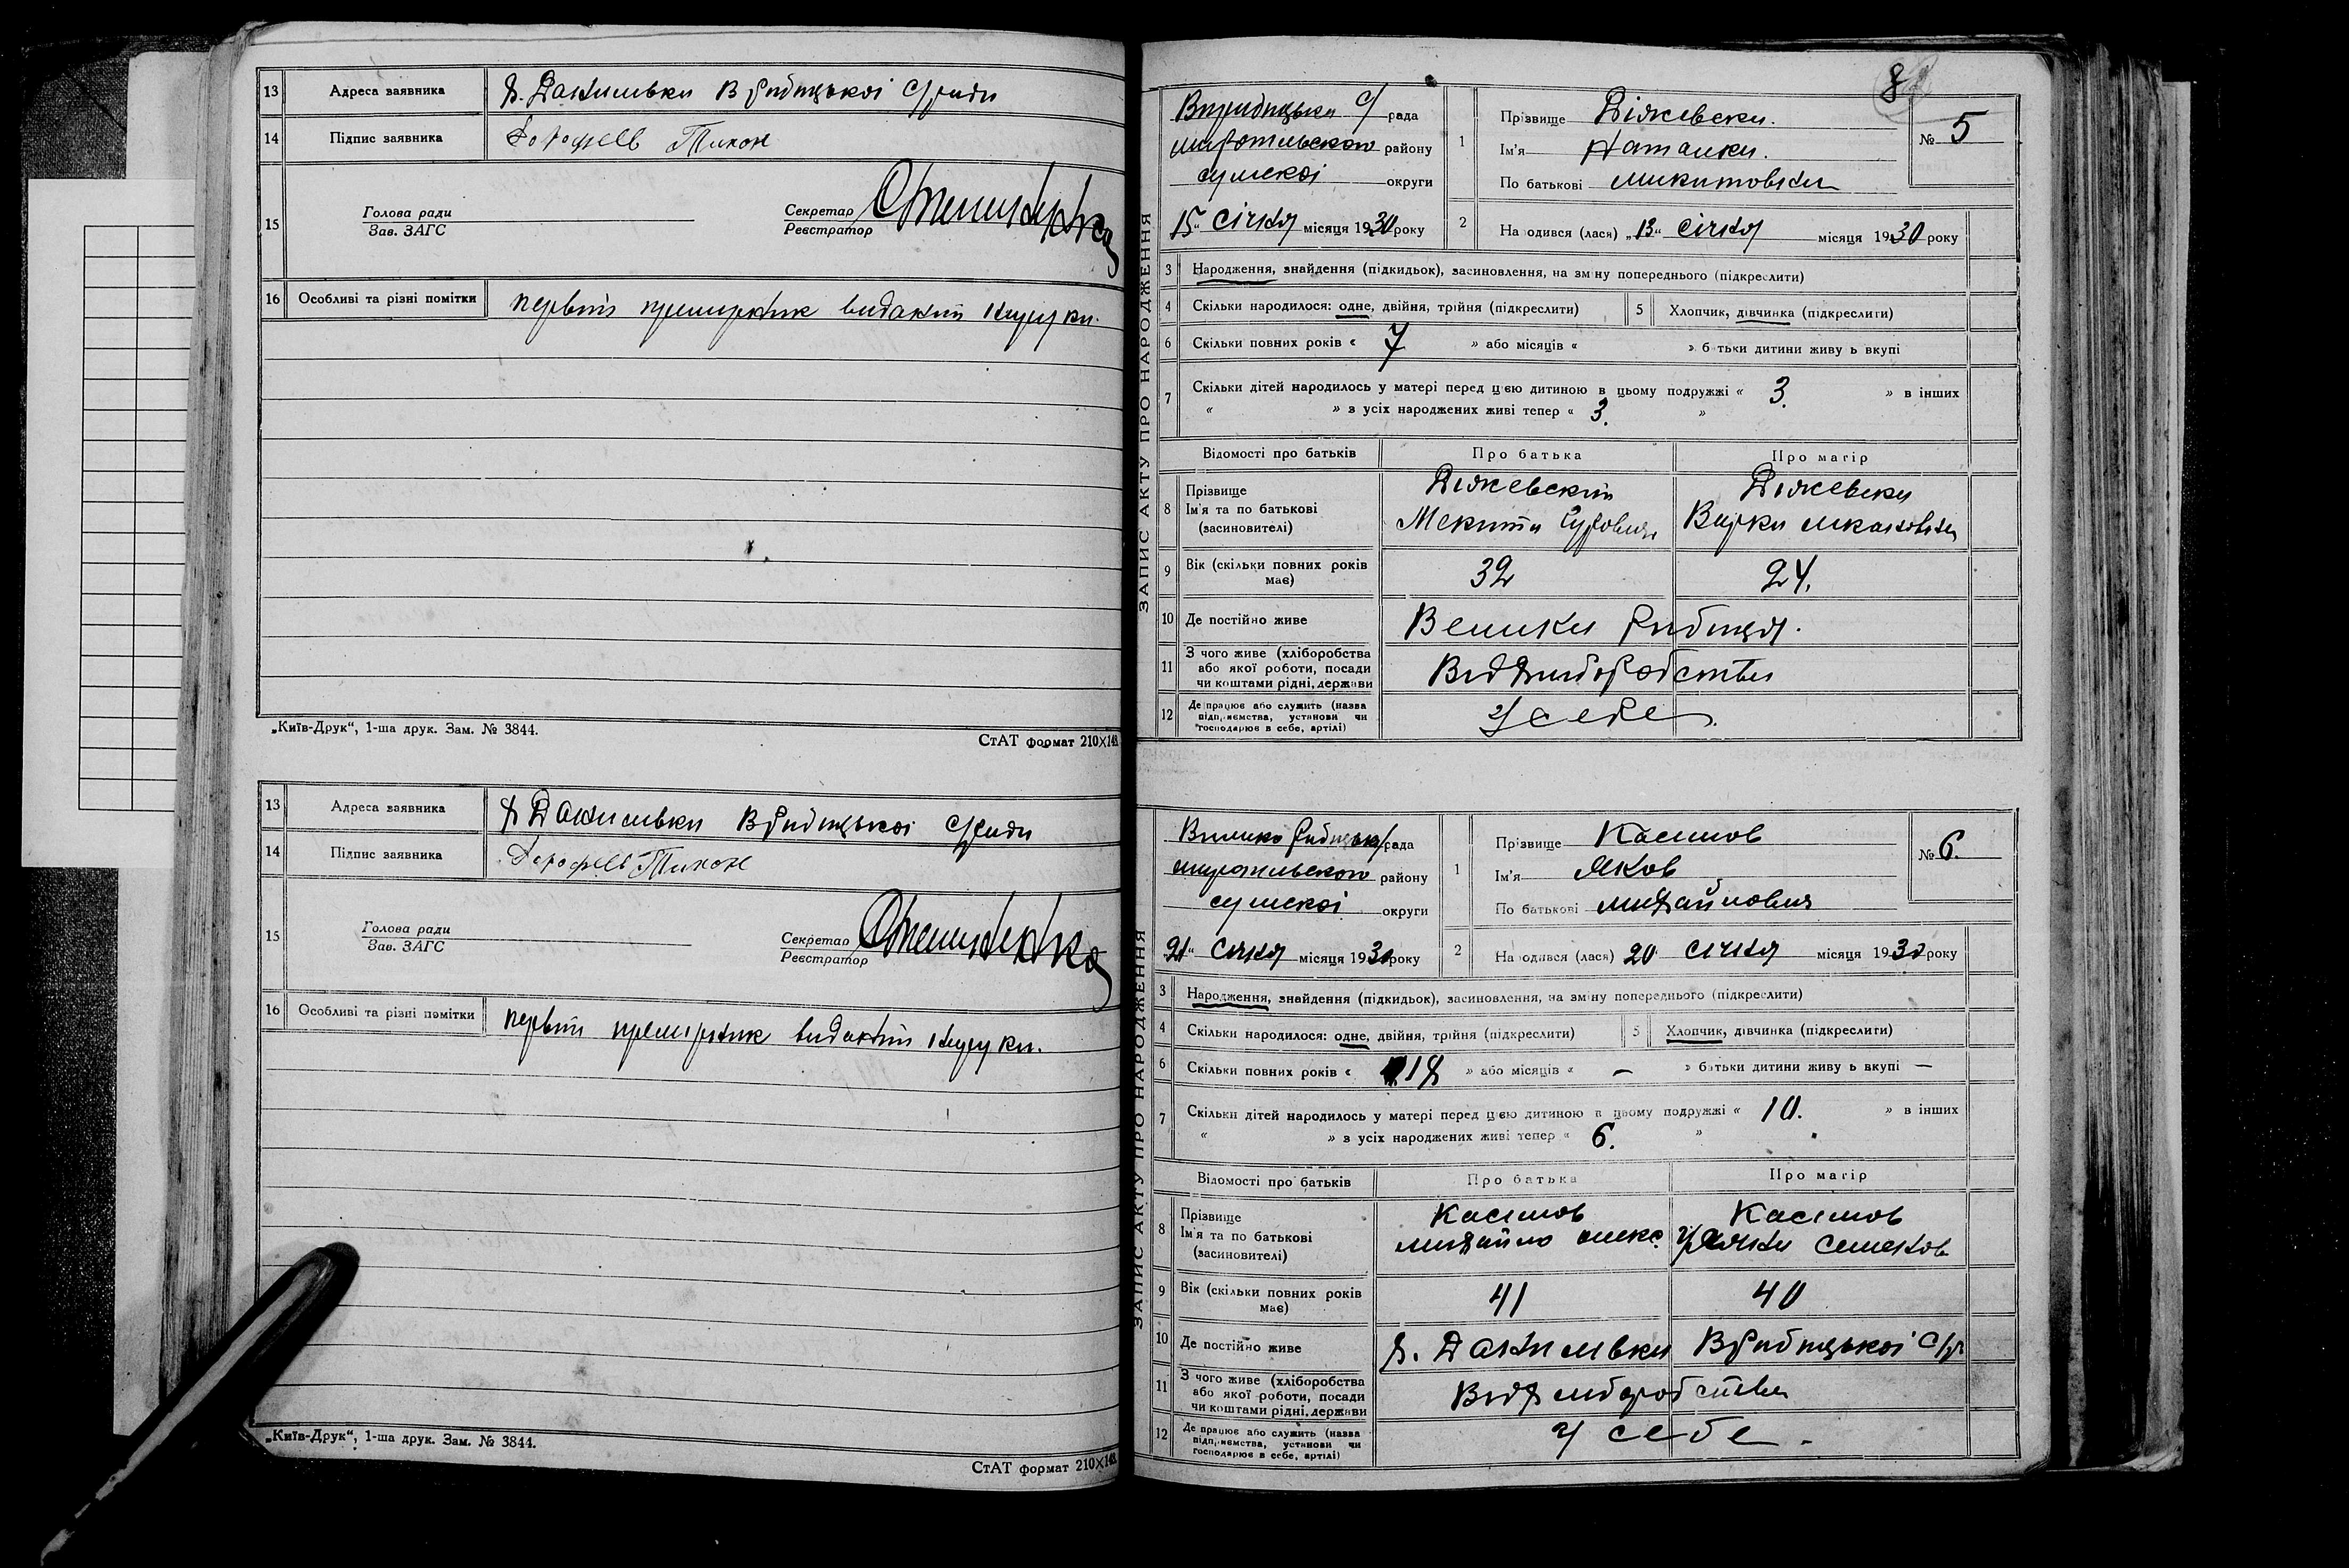 13 Адреса заявника х. Данильвка В Рибицькоі С/ради
14 Підпис заявника Дорофеев Тихон
15 Голова ради
Зав. ЗАГС
Секретар
Реєстратор
16 Особливі та різні помітки первий примірник виданий на руки.
„Київ-Друк“, 1-ша друк. Зам. № 3844.
СтАТ формат 210×148
13 Адреса заявника х Данильвка В Рибицькоі С/ради
14 Підпис заявника Дорофеев Тихон
15 Голова ради
Зав. ЗАГС
Секретар
Реєстратор
16 Особливі та різні помітки первий примірник виданий на руки.
„Київ-Друк“, 1-ша друк. Зам. № 3844.
СтАТ формат 210×148
8
ЗАПИС АКТУ ПРО НАРОДЖЕННЯ
В рибицька С/ рада
миропільского району
сумскоі округи
15 січня місяця 1930 року
1 Прізвище Діжевска.
Ім'я Наталка.
По батькові микитовна
№ 5
2 Народився (лася) „13“ січня місяця 1930 року
3 Народження, знайдення (підкидьок), засиновлення, на зміну попереднього (підкреслити)
4 Скільки народилося: одне, двійня, трійня (підкреслити) 5 Хлопчик, дівчинка (підкреслити)
6 Скільки повних років « 7 » або місяців « » батьки дитини живуть вкупі
7 Скільки дітей народилось у матері перед цією дитиною в цьому подружжі « 3. » в інших
« » з усіх народжених живі тепер « 3. »
Відомості про батьків Про батька Про матір
8 Прізвище
Ім'я та по батькові
(засиновителі)
Діжевский
Микита
Діжевска
Варка
9 Вік (скільки повних років має) 32 24.
10 Де постійно живе Велика Рибиця.
11 З чого живе (хліборобства
або якої роботи, посади
чи коштами рідні, держави
Від хліборобства
12 Де працює або служить (назва
підприємства, установи чи
господарює в себе, артілі)
У себе
ЗАПИС АКТУ ПРО НАРОДЖЕННЯ
Велико Рибицька С/рада
миропільского району
сумскоі округи
21 січня місяця 1930 року
1 Прізвище Касимов
Ім'я Яков
По батькові михайлович
№ 6.
2 Народився (лася) 20 січня місяця 1930 року
3 Народження, знайдення (підкидьок), засиновлення, на зміну попереднього (підкреслити)
4 Скільки народилося: одне, двійня, трійня (підкреслити) 5 Хлопчик, дівчинка (підкреслити)
6 Скільки повних років « 18 » або місяців « — » батьки дитини живуть вкупі —
7 Скільки дітей народилось у матері перед цією дитиною в цьому подружжі « 10. » в інших
« » з усіх народжених живі тепер « 6. »
Відомості про батьків Про батька Про матір
8 Прізвище
Ім'я та по батькові
(засиновителі)
Касимов
михайло олекс.
Касимов
Семенов
9 Вік (скільки повних років має) 41 40
10 Де постійно живе х. Данильвка В Рибицькоі С/р
11 З чого живе (хліборобства
або якої роботи, посади
чи коштами рідні, держави
Від хліборобства
12 Де працює або служить (назва
підприємства, установи чи
господарює в себе, артілі)
У себе.